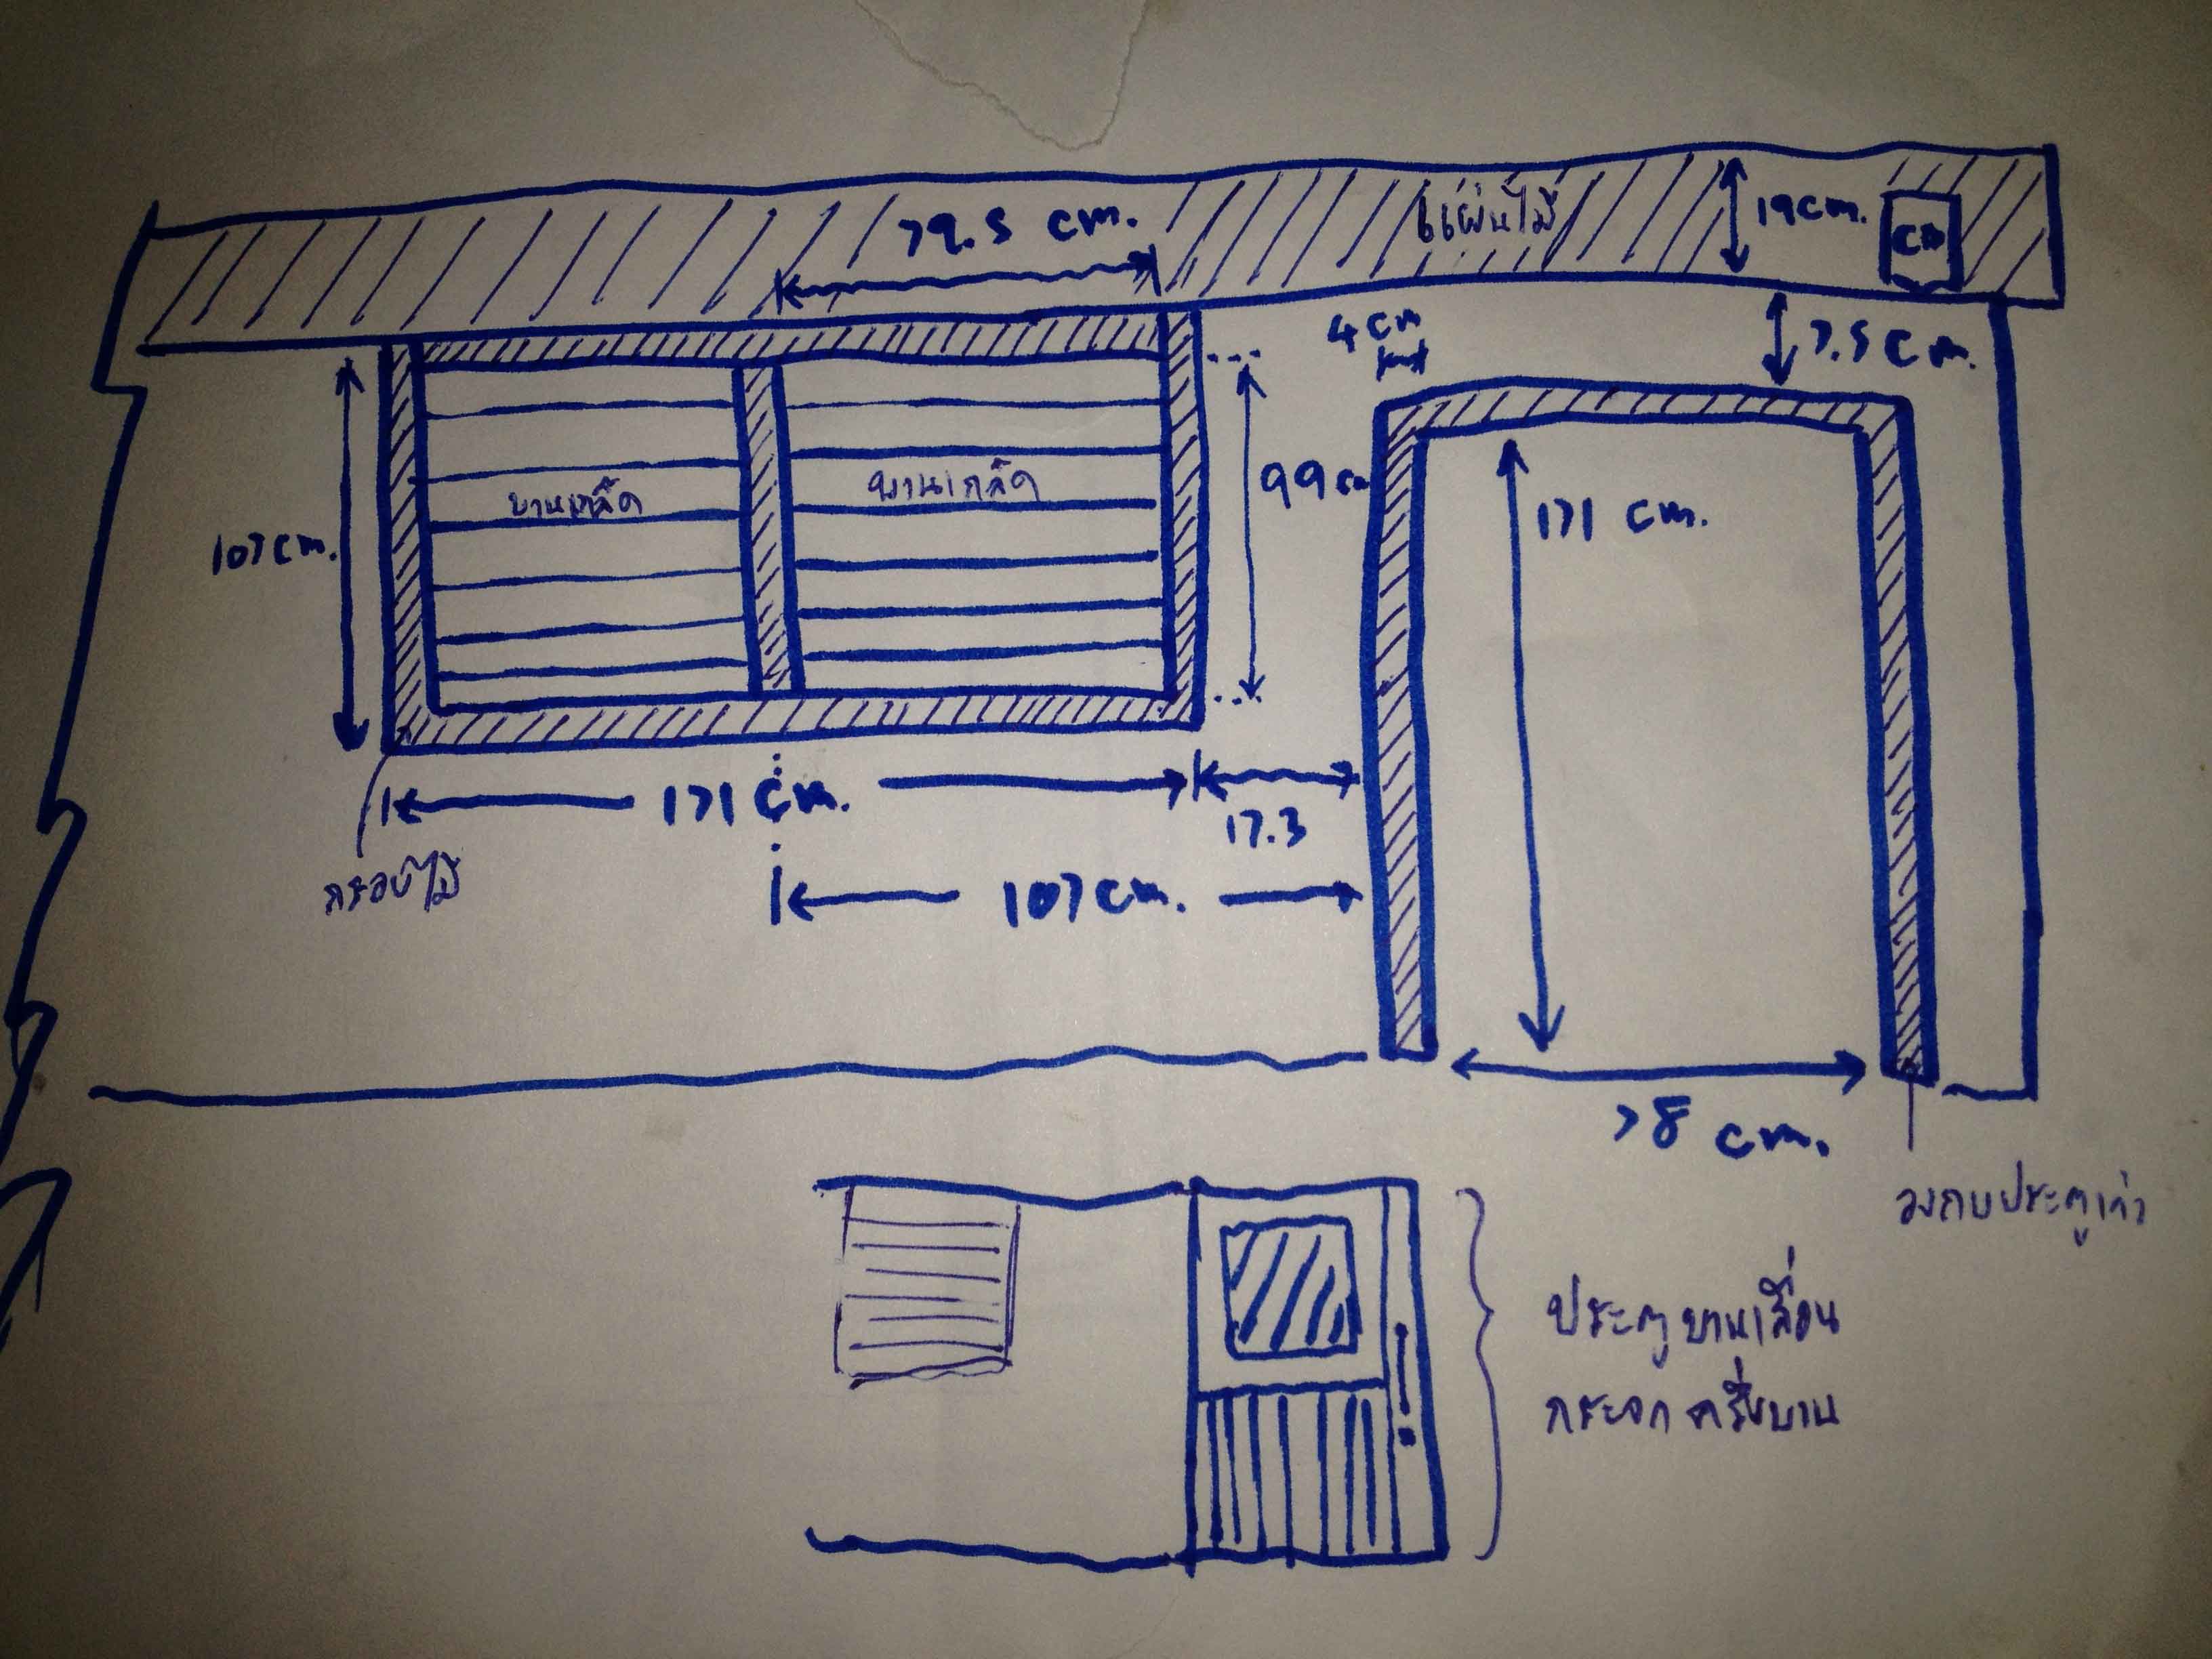 แผ่นไม้
19 cm.
CB
79.5 cm.
4 cm
7.5 cm.
107 cm.
บานเกล็ด
บานเกล็ด
99 cm
171 cm.
171 cm.
17.3
กรอบไม้
107 cm.
78 cm.
วงกบประตูเก่า
ประตูบานเลื่อน
กระจกครึ่งบาน